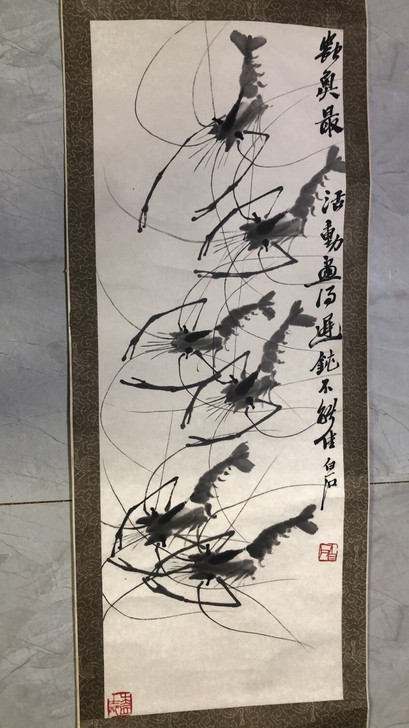 最活動畫得遲鈍不能佳 白石